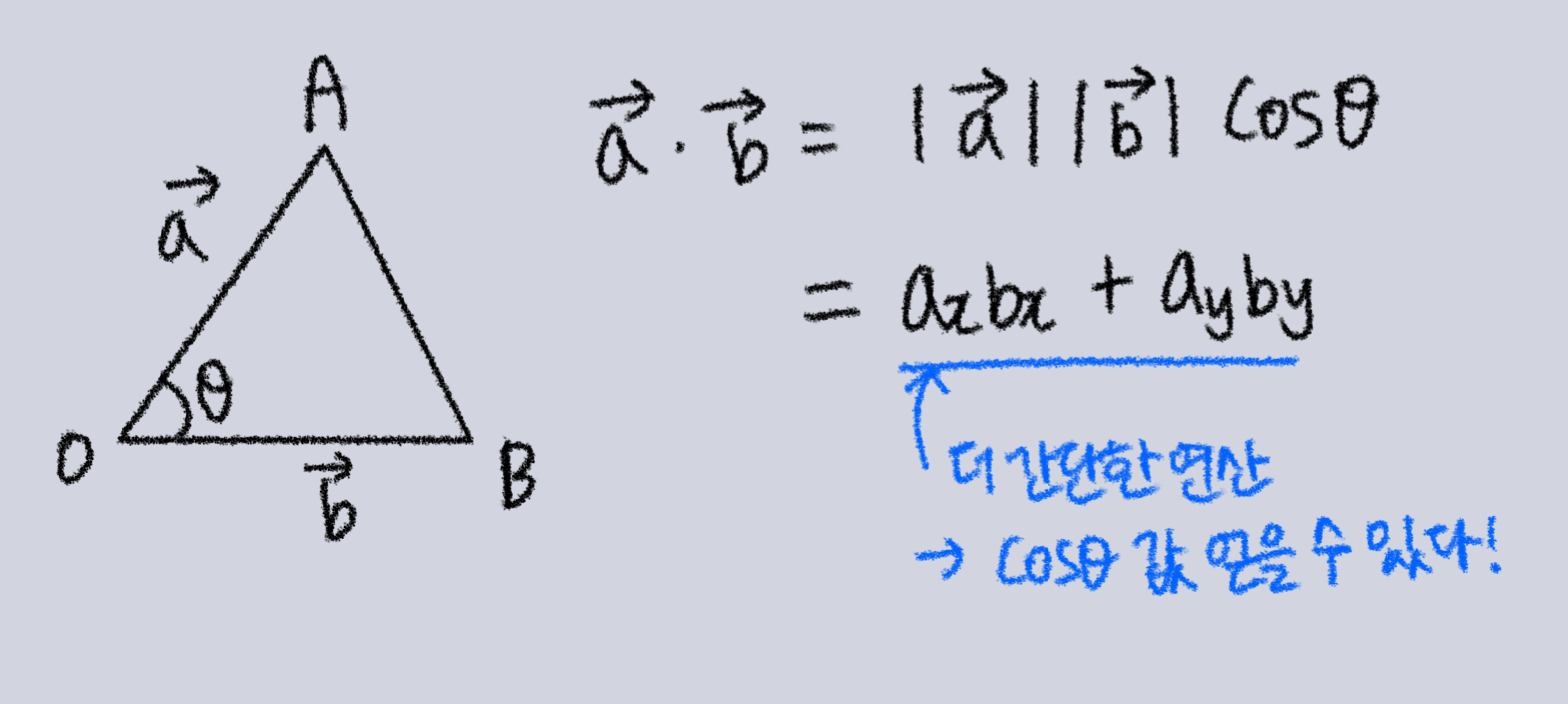 A
a⃗
θ
O
b⃗
B
a⃗ · b⃗ = |a⃗| |b⃗| cosθ
= aₓbₓ + a_y b_y
더 간단한 연산
→ cosθ 값 얻을 수 있다!